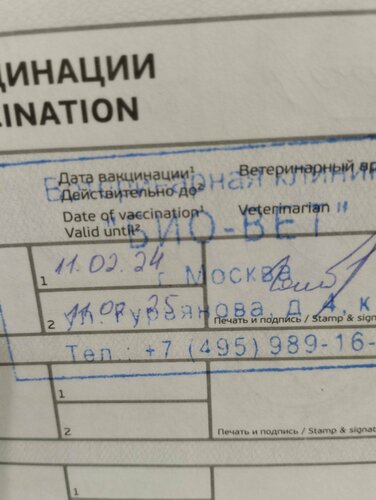 ЦИНАЦИИ
CINATION
Дата вакцинации¹ Ветеринарный вр
Действительно до²
Ветеринарная клини
Date of vaccination¹ Veterinarian
Valid until²
"БИО-ВЕТ"
1 11.02.24
г. Москва
2 11.02.25
ул. Гурьянова, д. 4, к
Печать и подпись / Stamp & signa
Тел.: +7 (495) 989-16-
1
2 Печать и подпись / Stamp & signat
1